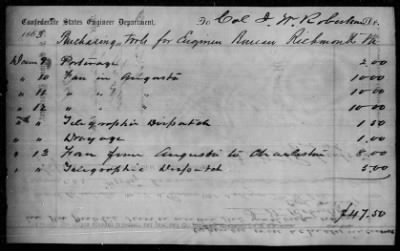 Confederate States Engineer Department, To Col J. W. Robertson Dr.
1863 Purchasing tools for Engineer Bureau Richmond Va
9 Porterage 2.00
" 10 Fare in Augusta 10.00
" 11 " " " 10.00
" 12 " " " 10.00
" " Telegraphic Dispatch 1.50
" " Drayage 1.00
" 13 Fare from Augusta to Charleston 8.00
" " Telegraphic Dispatch 5.00
$47.50